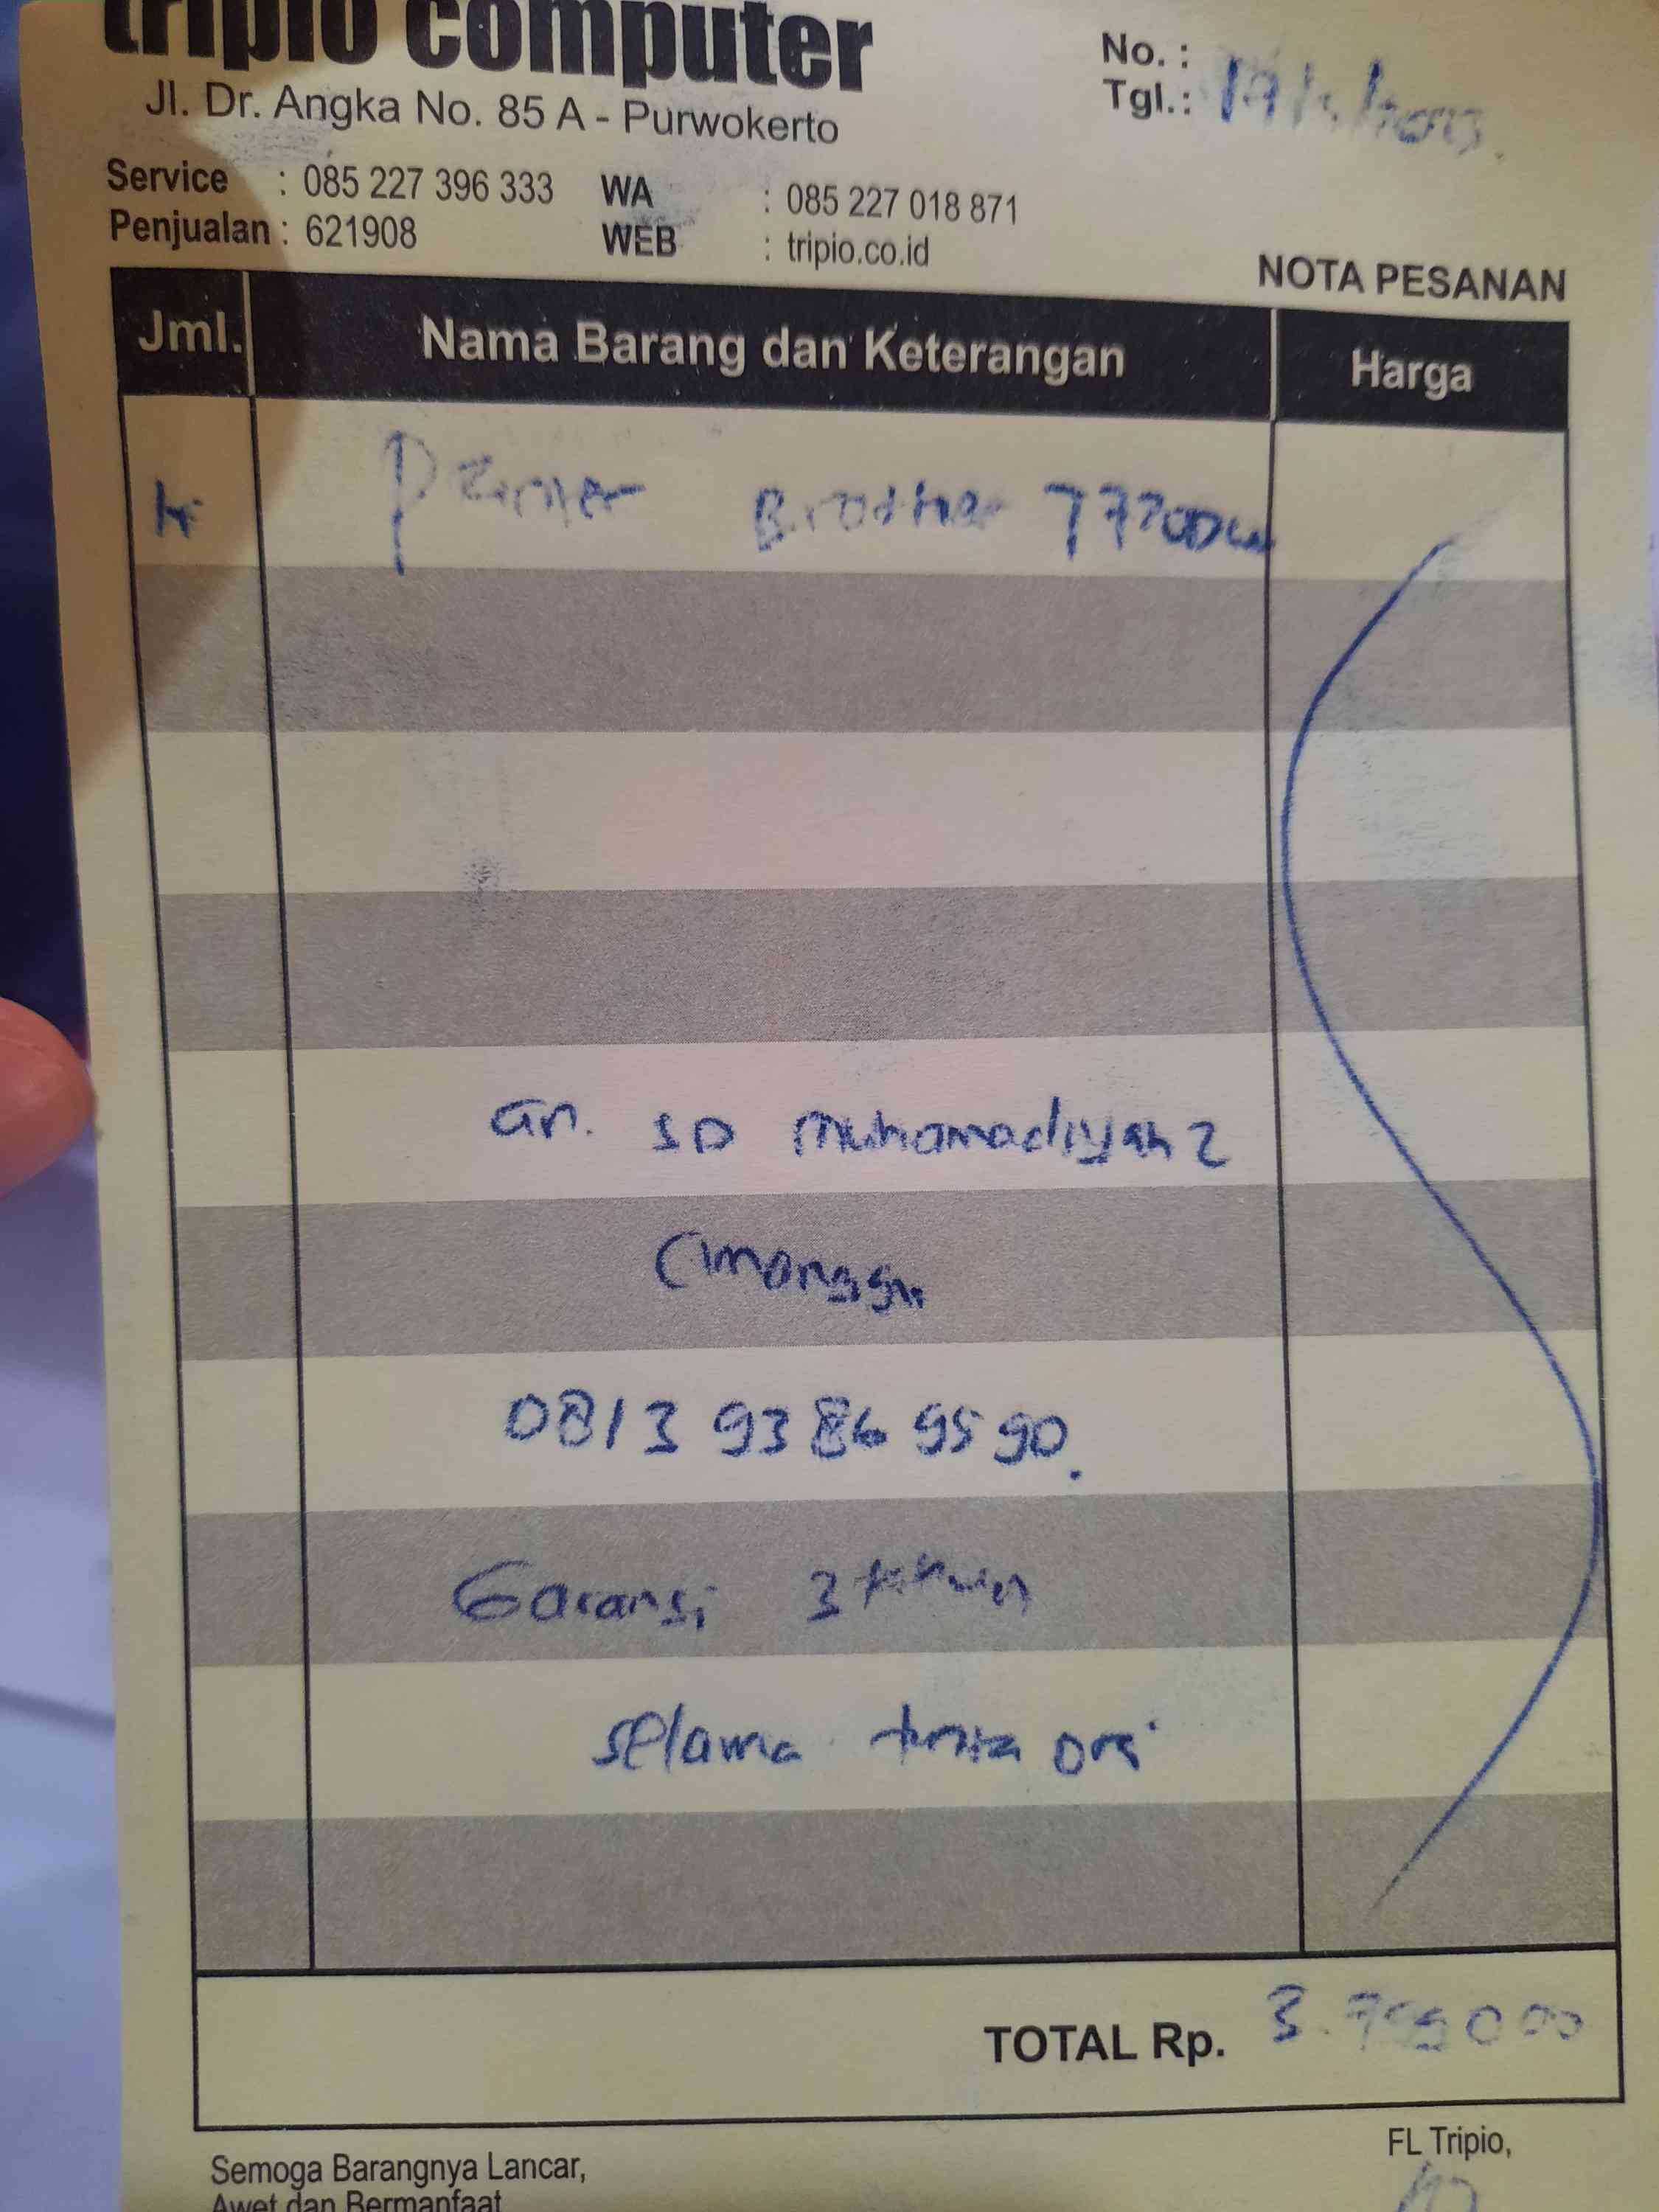 tripio computer
Jl. Dr. Angka No. 85 A - Purwokerto
No. :
Tgl. :
Service : 085 227 396 333 WA : 085 227 018 871
Penjualan : 621908 WEB : tripio.co.id
NOTA PESANAN
Jml. Nama Barang dan Keterangan Harga
Brother T720DW
an. SD Muhamadiyah 2
Cimanggu
0813 9386 9590.
Garansi 3 tahun
selama tinta ori
TOTAL Rp.
FL Tripio,
Semoga Barangnya Lancar,
Awet dan Bermanfaat